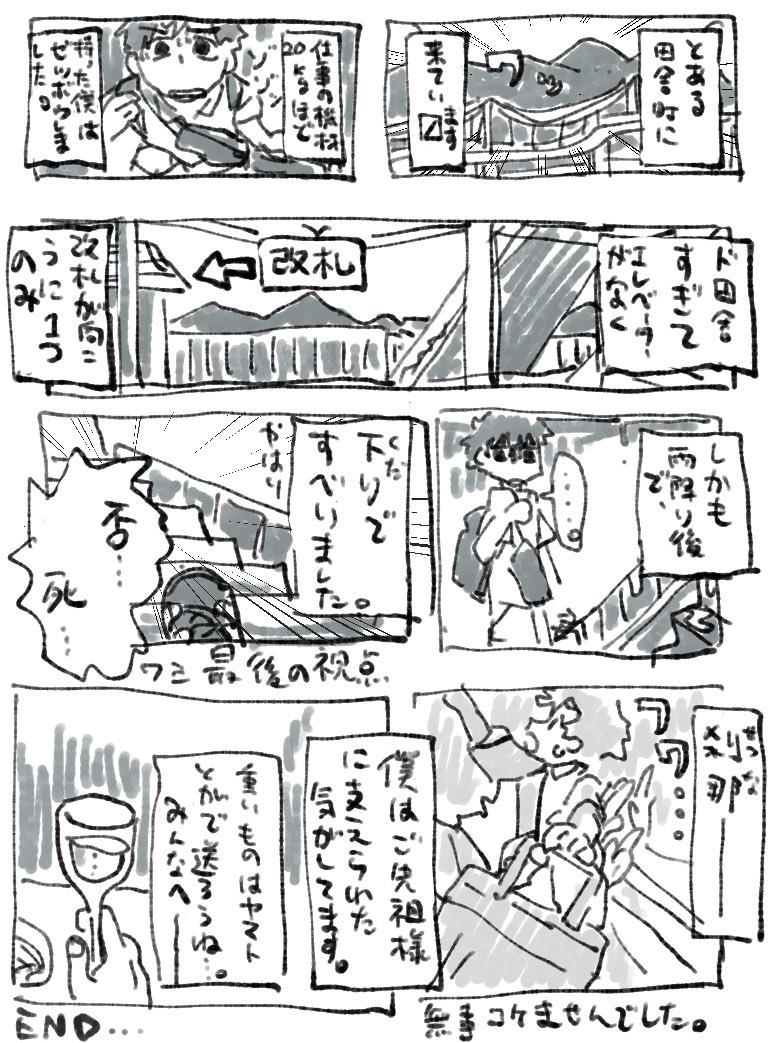 とある
田舎町に
来てい
ます
ゾゾゾン
仕事の機材
20kgほど
持った僕は
ゼツボウしま
した。
ド田舎
すぎて
エレベーター
がなく
改札
改札が向こ
うに1つ
のみ
しかも
雨降り後
で、
……。
くだ
下りで
すべりました。
やはり
否…
死…
最後の視点
せつな
刹那
無事コケませんでした。
僕はご先祖様
に支えられた
気がしてます。
重いものはヤマト
とかで送ろうね…。
みんなへ
END…